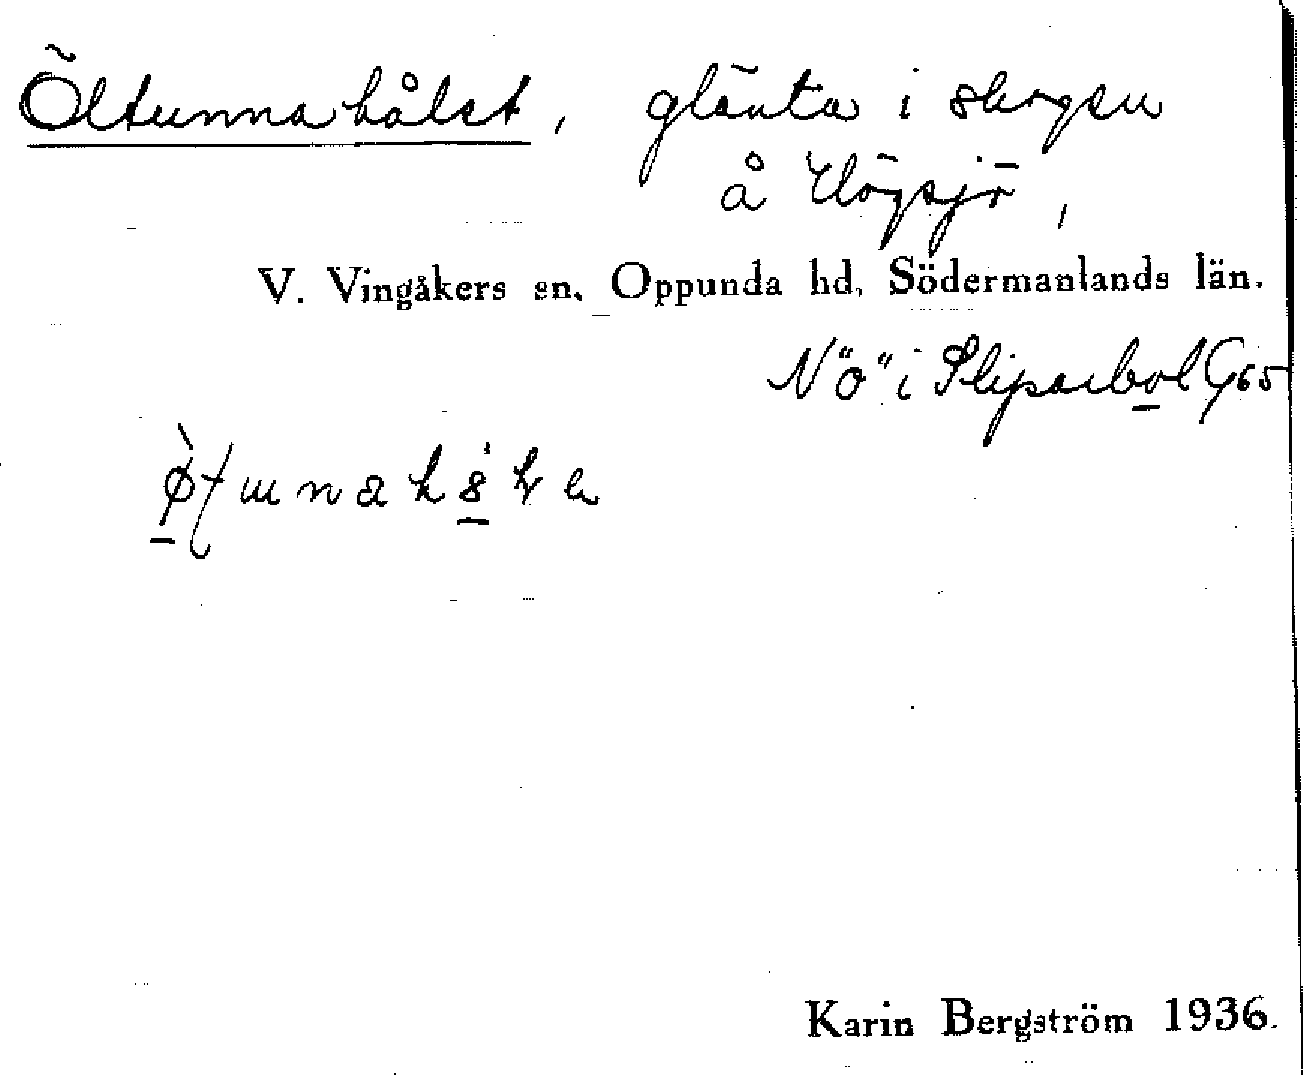 Öltunnahålet, glänta i skogen
å Högsjö,
V. Vingåkers sn. Oppunda hd. Södermanlands län.
N "ö" i Sliparbol G65
Karin Bergström 1936.